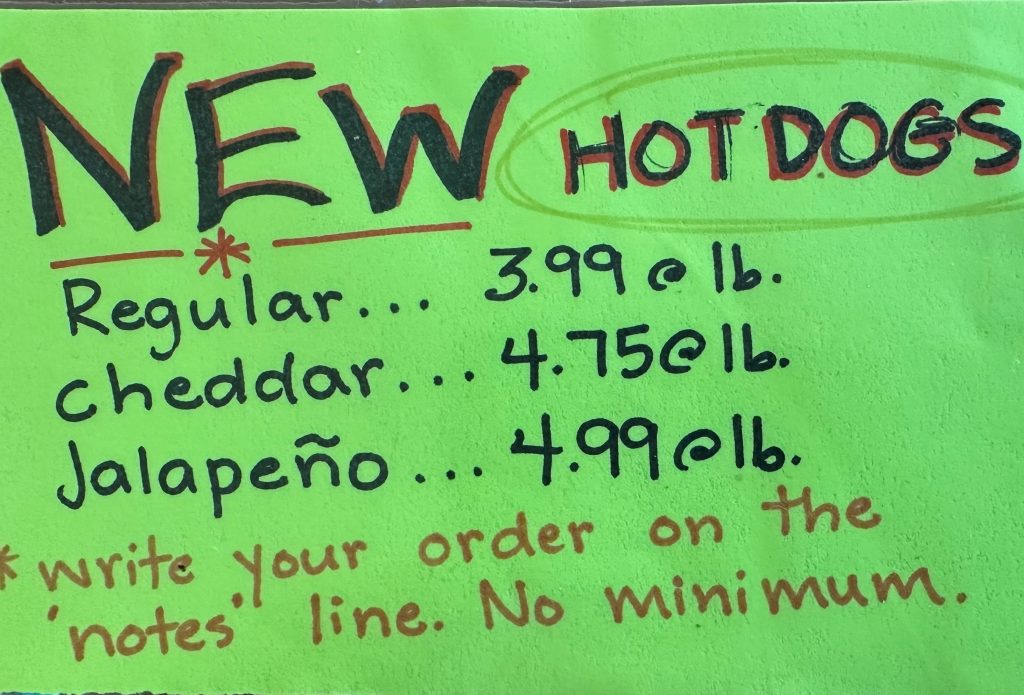 NEW HOT DOGS
Regular... 3.99 @ lb.
cheddar... 4.75 @ lb.
Jalapeño... 4.99 @ lb.
* write your order on the
'notes' line. No minimum.